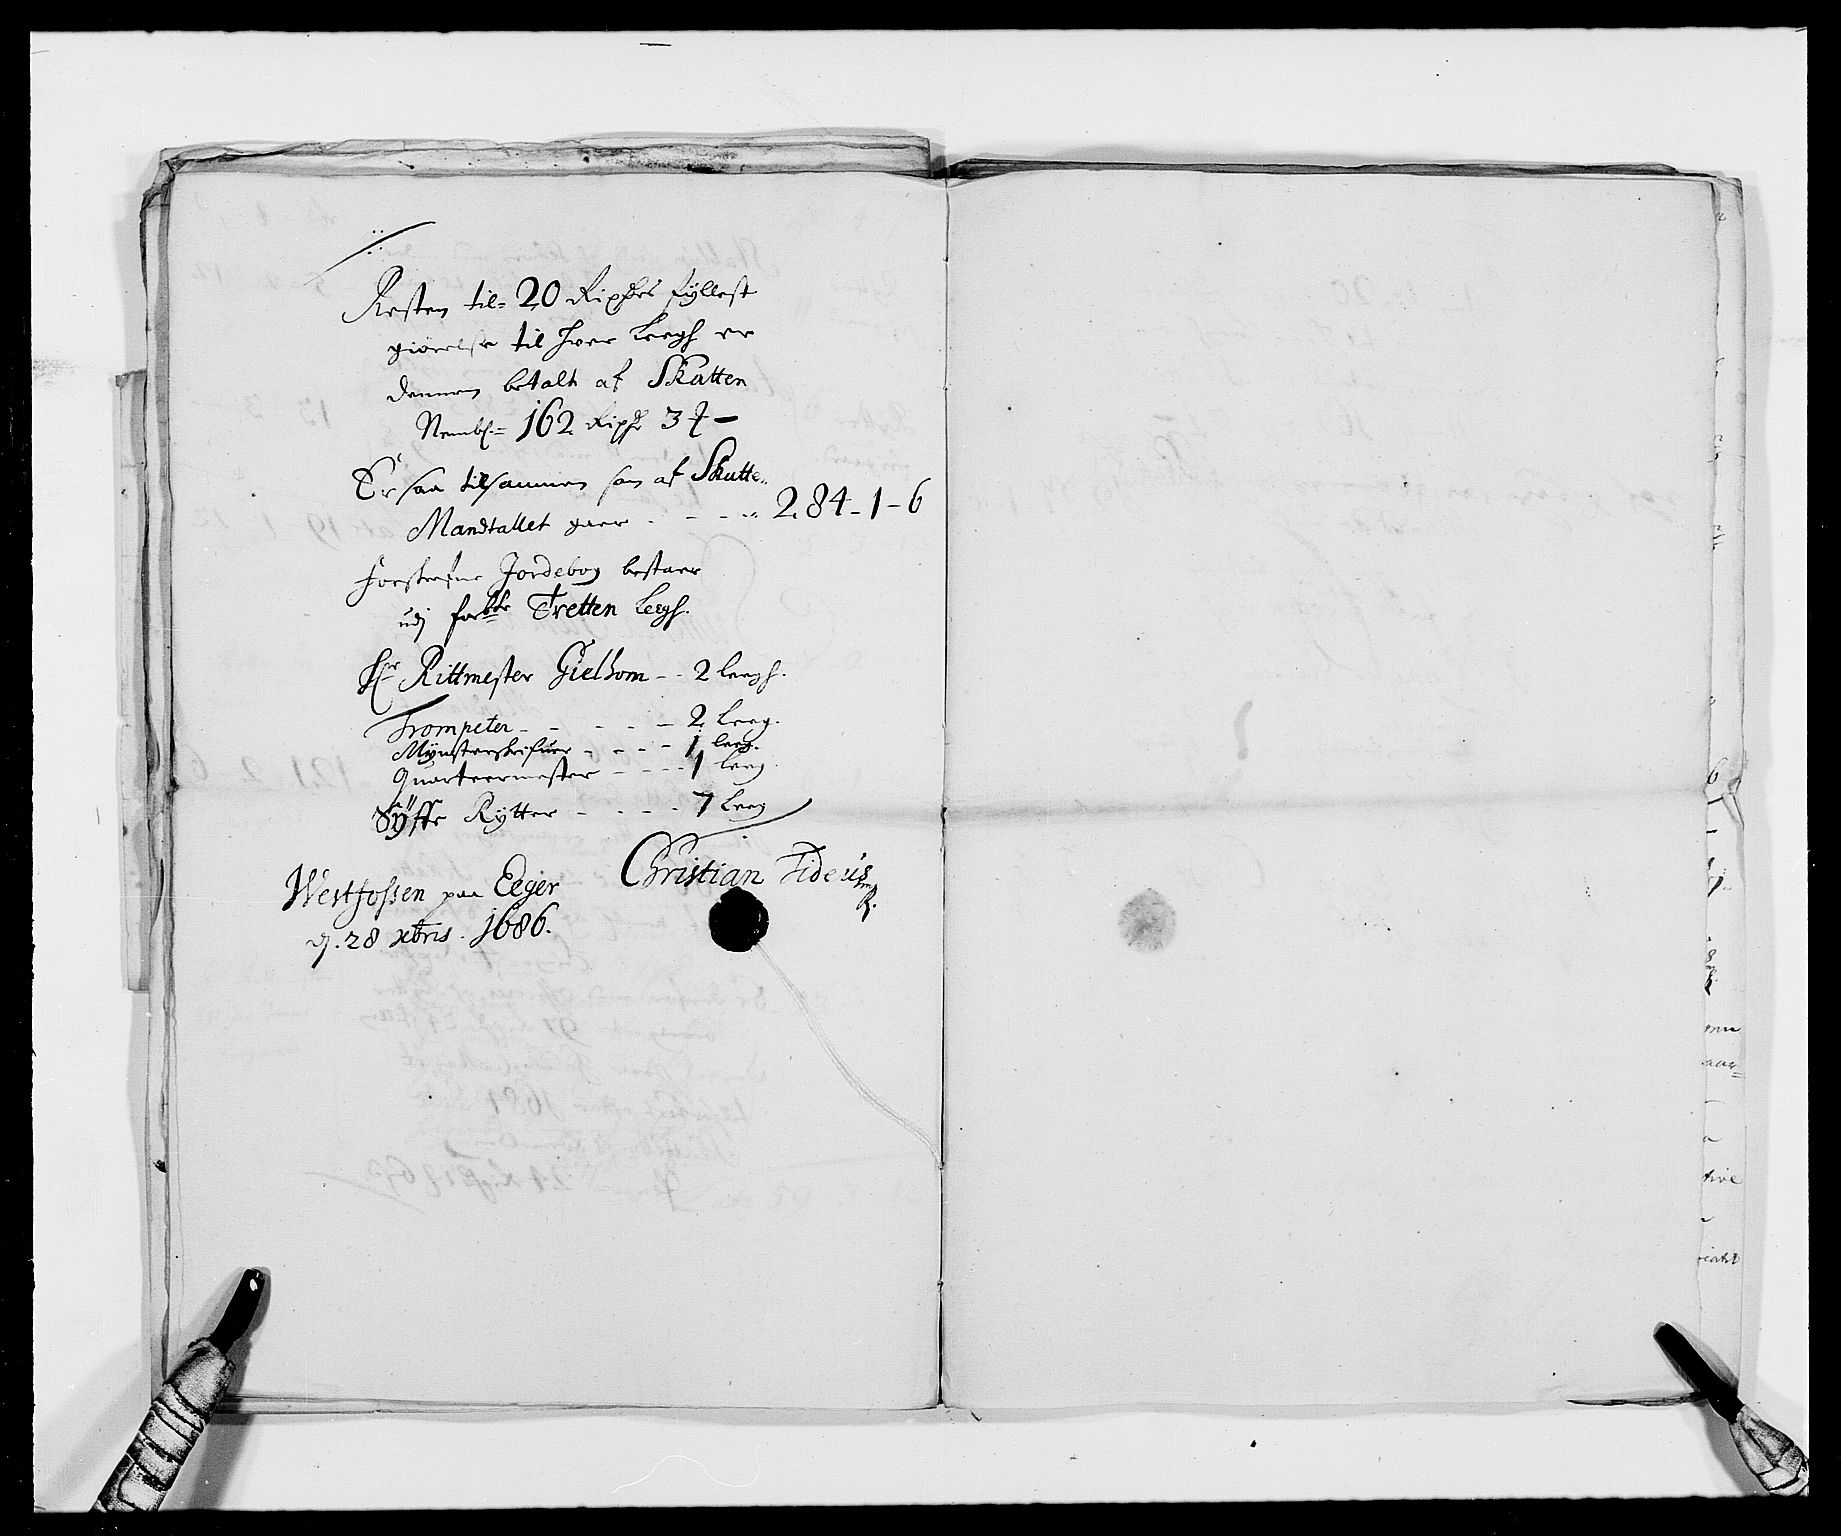 Resten til 20 Rixdrs fyllest
giørelse til hver Legh er
dennem betalt af Skatten
Nembl: 162 Rixdr 3
Er saa tilsammen som af Skatte
Mandtallet gaar - - - 284-1-6
Forschrefne Jordebog bestaar
udj forbte Tretten Legh.
Hr Rittmester Gielhom - - 2 Leegh.
Trompeter - - - - - 2 Leeg.
Mynsterskrifuer - - - - 1 leeg.
Quarteermester - - - - 1 Leeg
Syffv Rytter - - - - 7 Leeg
Westfossen paa Eeger
d. 28 xbris. 1686.
Christian Fideus